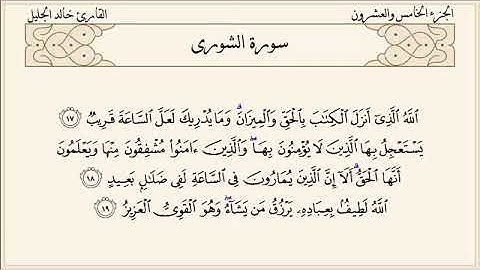 الجزء الخامس والعشرون
القارئ خالد الجليل
سورة الشورى
ٱللَّهُ ٱلَّذِىٓ أَنزَلَ ٱلْكِتَـٰبَ بِٱلْحَقِّ وَٱلْمِيزَانَ ۗ وَمَا يُدْرِيكَ لَعَلَّ ٱلسَّاعَةَ قَرِيبٌ ١٧
يَسْتَعْجِلُ بِهَا ٱلَّذِينَ لَا يُؤْمِنُونَ بِهَا ۖ وَٱلَّذِينَ ءَامَنُوا۟ مُشْفِقُونَ مِنْهَا وَيَعْلَمُونَ
أَنَّهَا ٱلْحَقُّ ۗ أَلَآ إِنَّ ٱلَّذِينَ يُمَارُونَ فِى ٱلسَّاعَةِ لَفِى ضَلَـٰلٍۭ بَعِيدٍ ١٨
ٱللَّهُ لَطِيفٌۢ بِعِبَادِهِۦ يَرْزُقُ مَن يَشَآءُ ۖ وَهُوَ ٱلْقَوِىُّ ٱلْعَزِيزُ ١٩